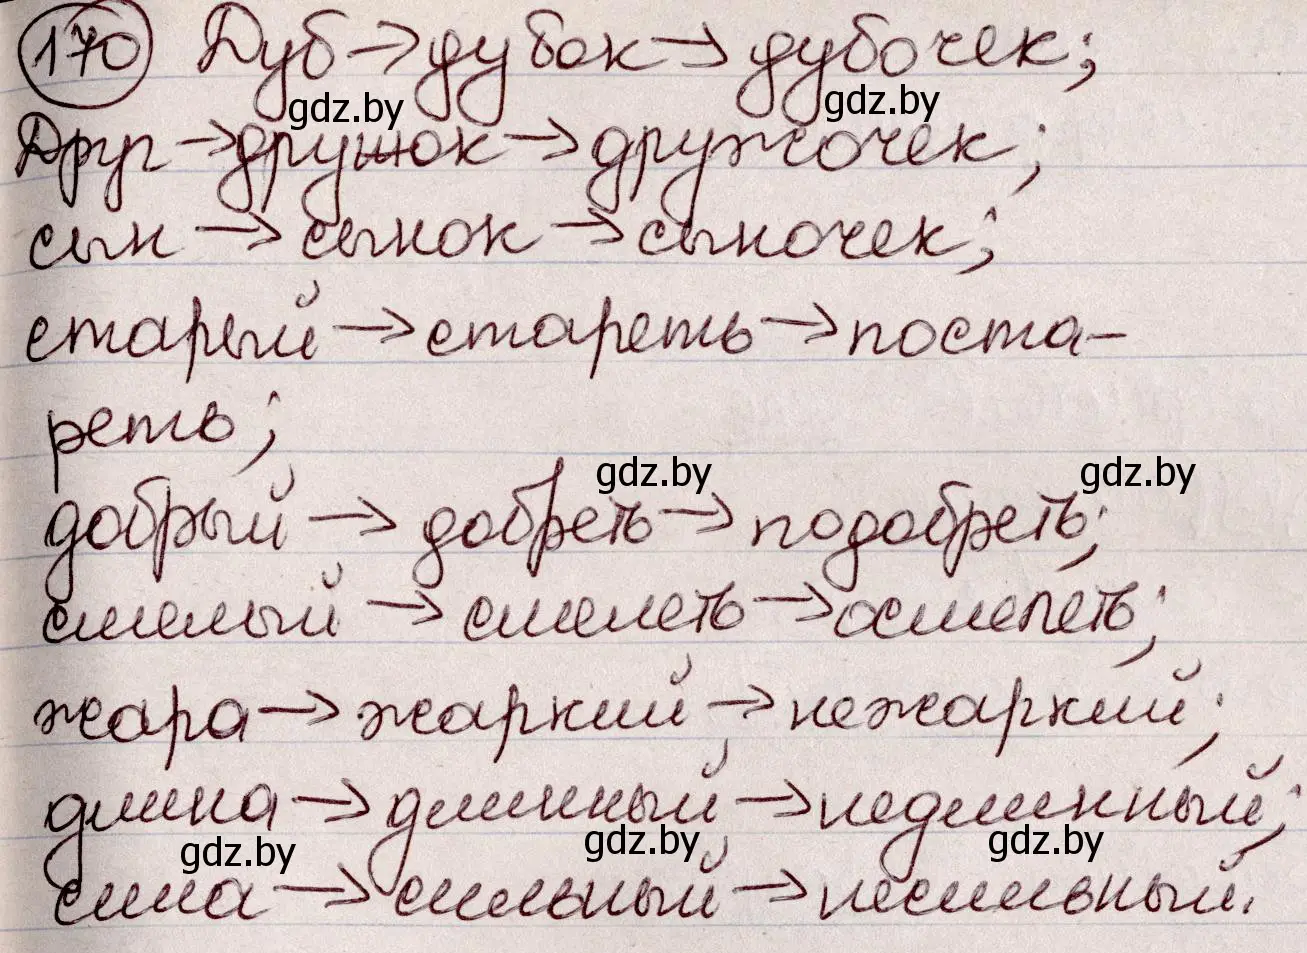 170 Дуб → дубок → дубочек;
gdz.by gdz.by
Друг → дружок → дружочек;
сын → сынок → сыночек;
старый → стареть → поста-
реть;
gdz.by gdz.by
добрый → добреть → подобреть;
смелый → смелеть → осмелеть;
жара → жаркий → нежаркий;
длина → длинный → недлинный;
gdz.by gdz.by gdz.by
сила → сильный → несильный.